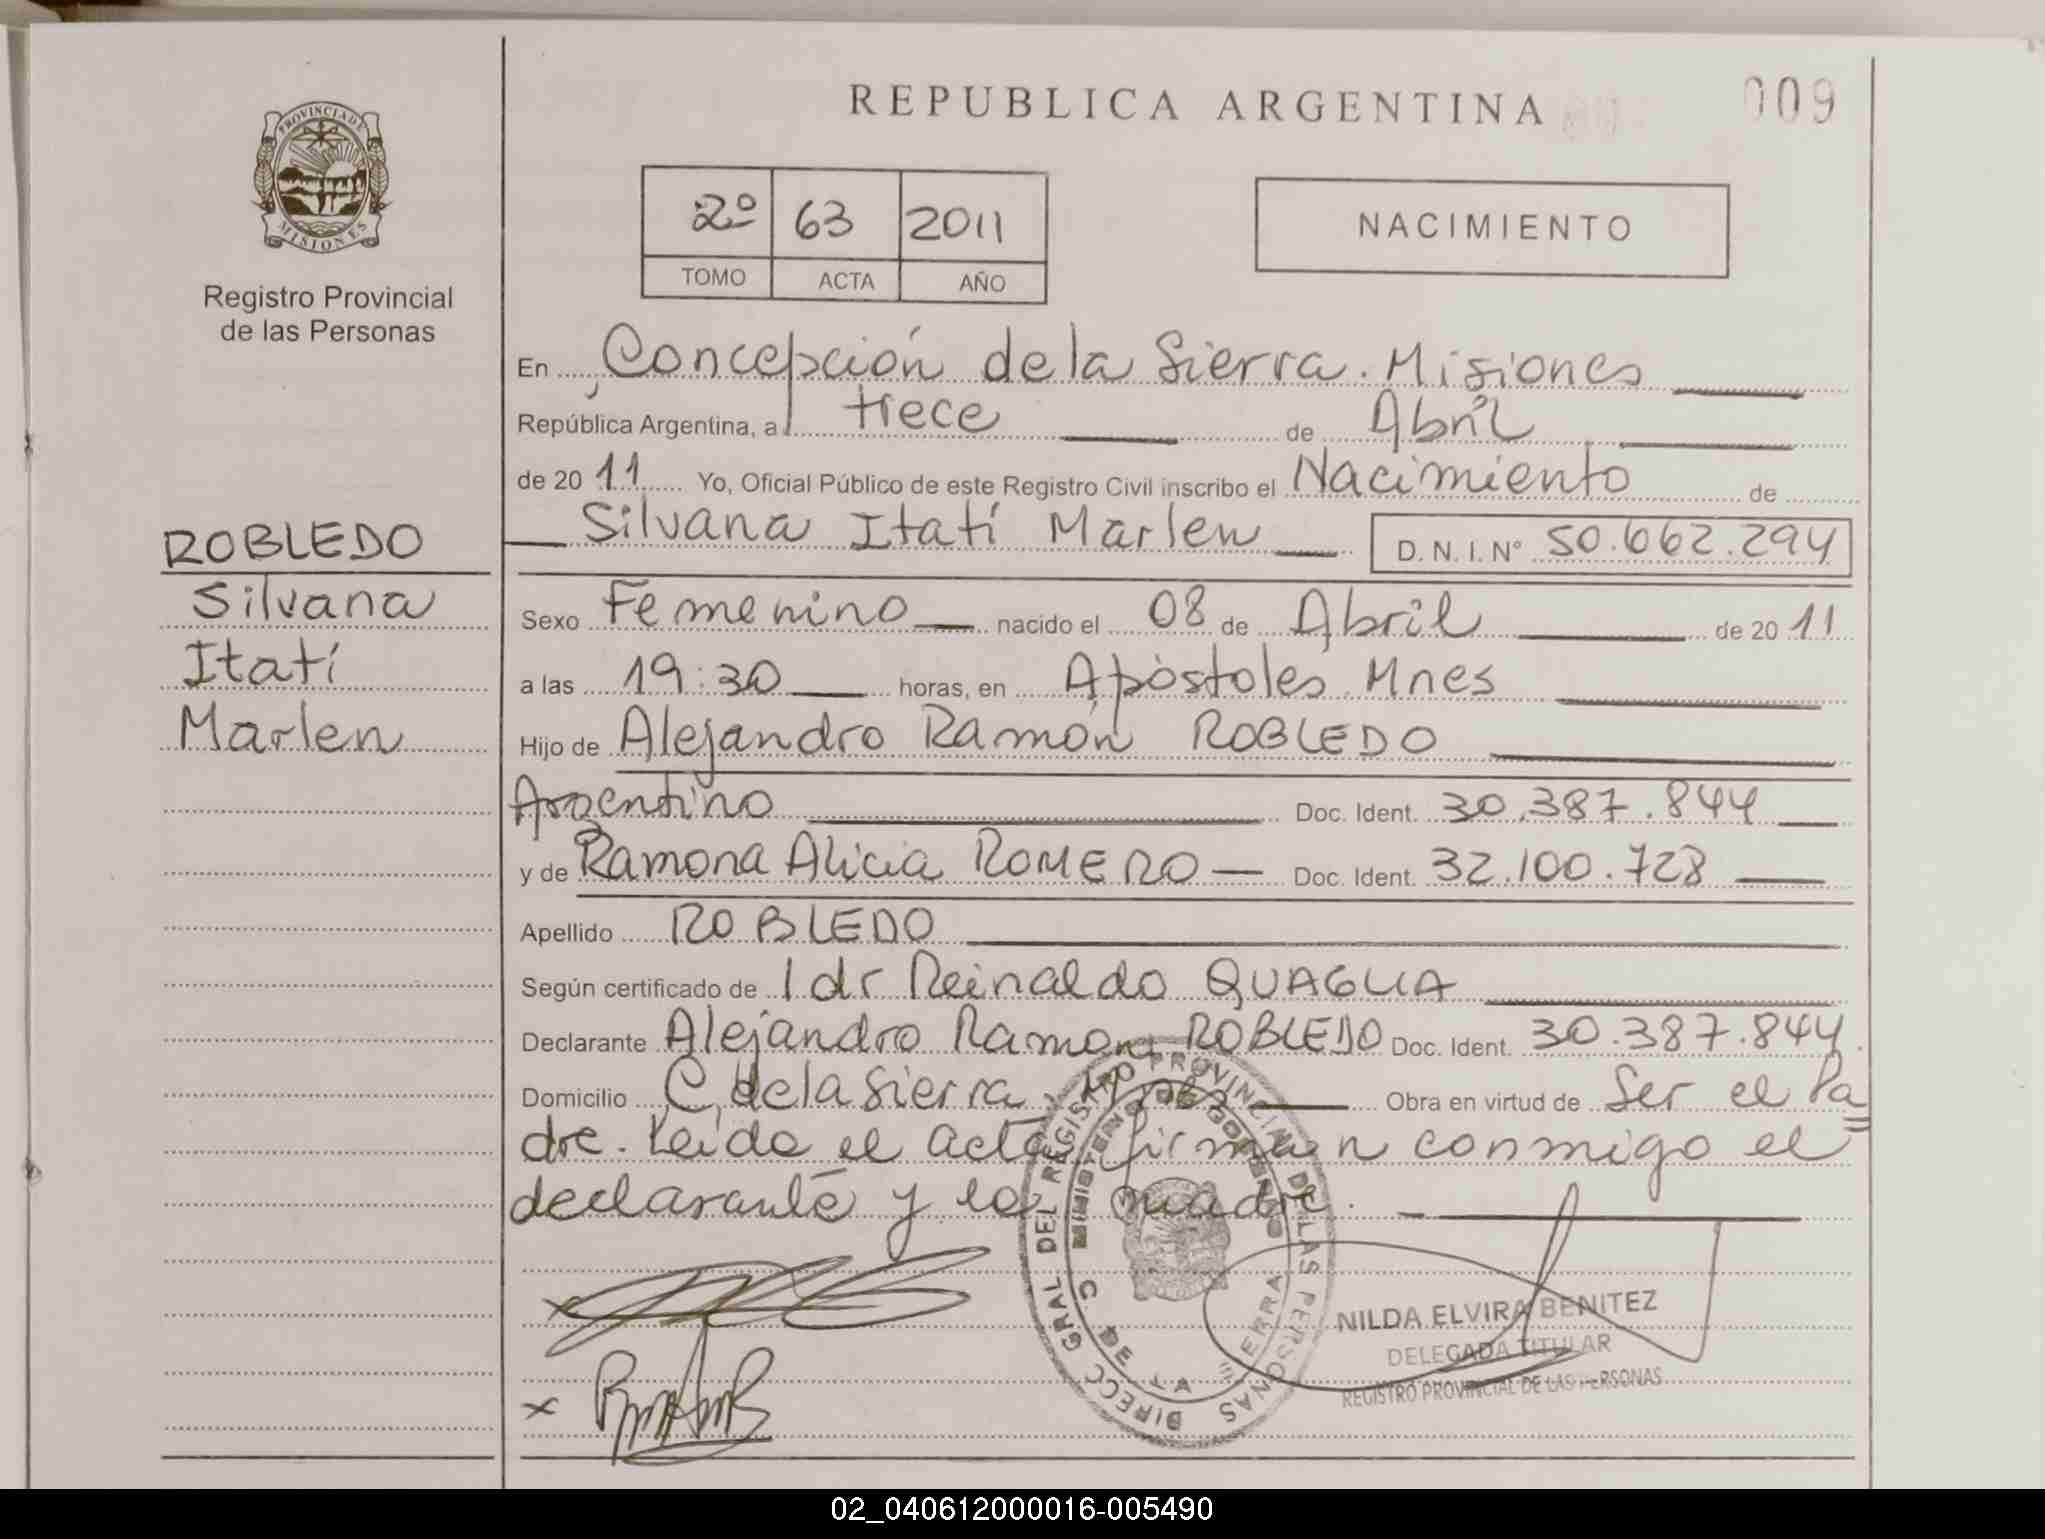 REPUBLICA ARGENTINA
009
PROVINCIA DE
MISIONES
Registro Provincial
de las Personas
2º 63 2011
TOMO ACTA AÑO
NACIMIENTO
En Concepción de la Sierra. Misiones
República Argentina, a trece de Abril
de 2011 Yo, Oficial Público de este Registro Civil inscribo el Nacimiento de
Silvana Itatí Marlen D.N.I. Nº 50.662.294
ROBLEDO
Silvana
Itatí
Marlen
Sexo Femenino nacido el 08 de Abril de 2011
a las 19:30 horas, en Apóstoles Mnes
Hijo de Alejandro Ramón ROBLEDO
Argentino Doc. Ident. 30.387.844
y de Ramona Alicia ROMERO Doc. Ident. 32.100.728
Apellido ROBLEDO
Según certificado de 1 dr Reinaldo QUAGLIA
Declarante Alejandro Ramon ROBLEDO Doc. Ident. 30.387.844
Domicilio C. de la Sierra, Mnes Obra en virtud de Ser el Pa
dre. Leída el acta, firman conmigo el
declarante y la madre.
DIRECC. GRAL DEL REGISTRO PROVINCIAL DE LAS PERSONAS
MINISTERIO DE GOBIERNO
C. DE LA SIERRA
NILDA ELVIRA BENITEZ
DELEGADA TITULAR
REGISTRO PROVINCIAL DE LAS PERSONAS
02_040612000016-005490